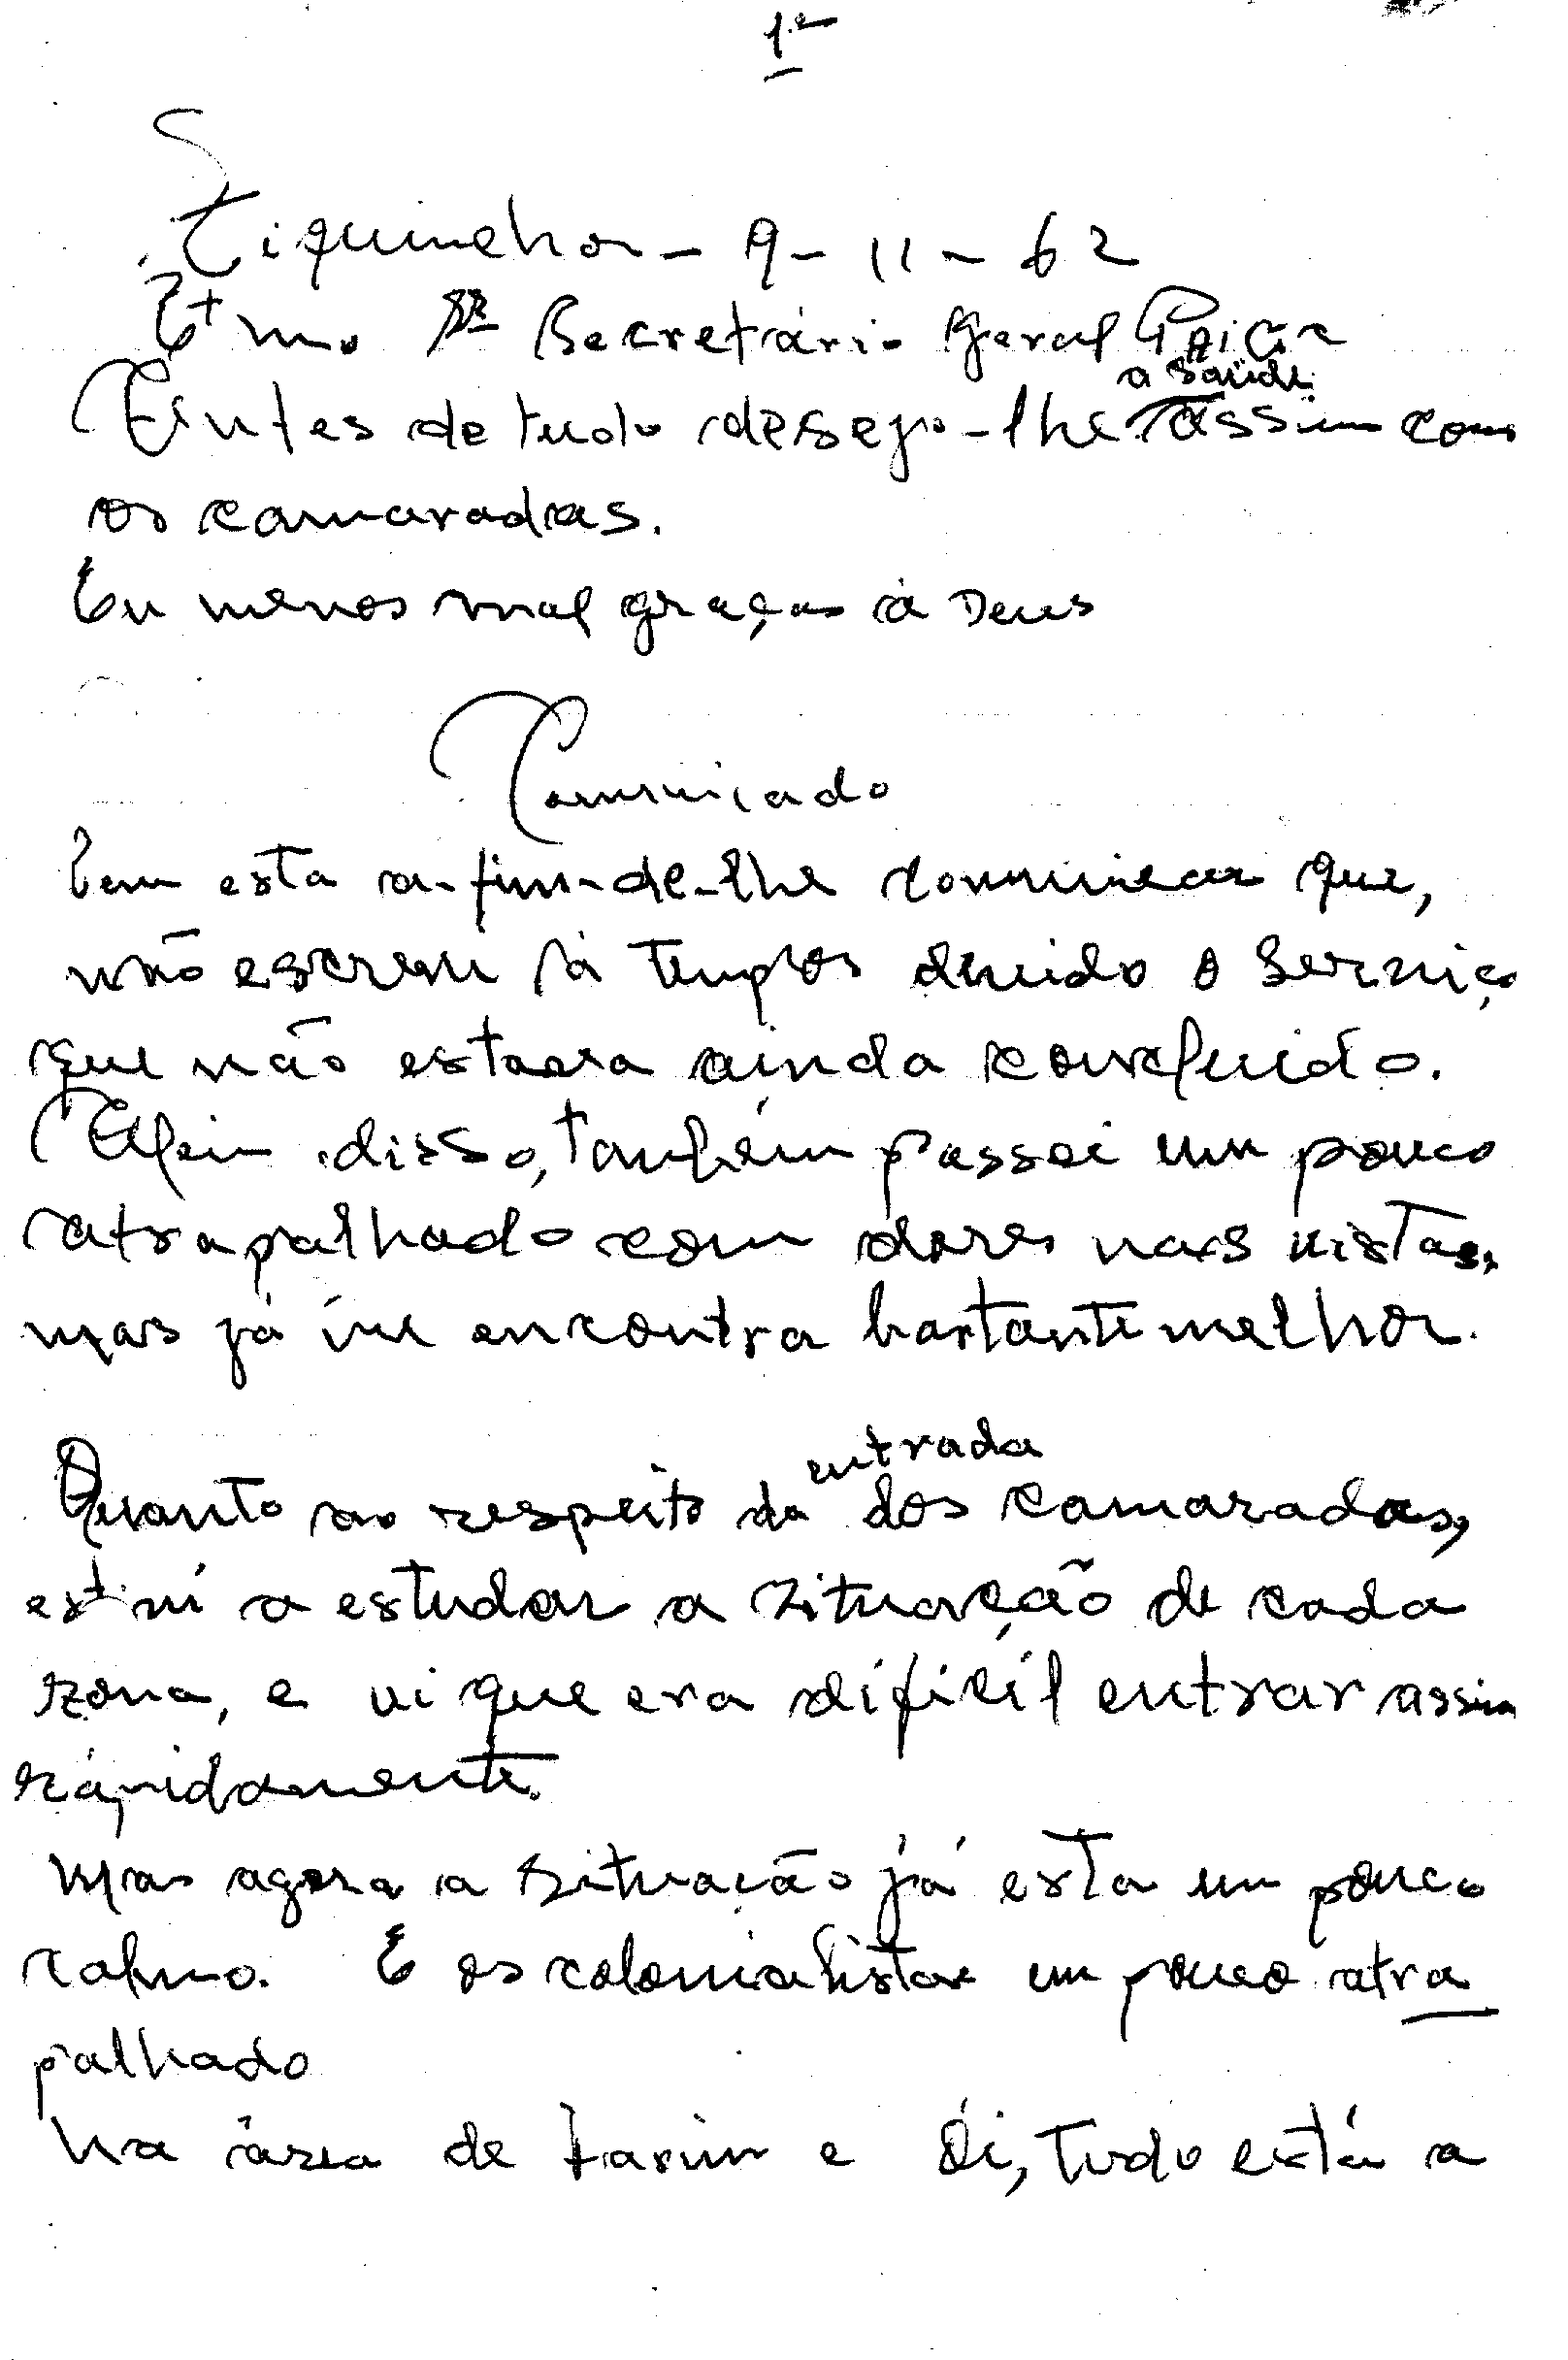 1º
Ziquinchor - 9-11-62
Exmo Sr Secretário geral PAIGC
Antes de tudo desejo-lhe a saúde assim com
os camaradas.
Eu menos mal graças à Deus
Comunicado
Vem esta a-fim-de-lhe comunicar que,
não escrevi à tempos devido o serviço
que não estava ainda concluido.
Além disso, também passei um pouco
atrapalhado com dores nas vistas,
mas já me encontra bastante melhor.
Quanto ao respeito da entrada dos camaradas,
estivi a estudar a situação de cada
zona, e vi que era difícil entrar assim
rápidamente.
Mas agora a situação já esta um pouco
calmo. E os colonialistas um pouco atra
palhado
Na área de Farim e Oi, tudo está a